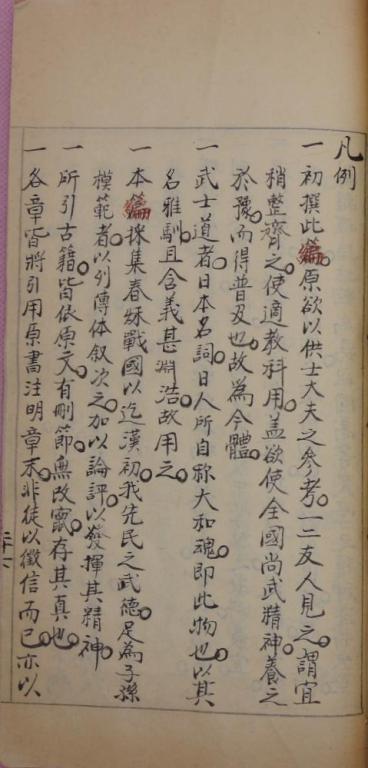 凡例
一 初撰此編。原欲以供士大夫之參考。一二友人見之。謂宜
稍整齊之。使適教科用。蓋欲使全國尚武精神。養之
於豫。而得普及也。故為今體。
一 武士道者。日本名詞。日人所自称大和魂。即此物也。以其
名雅馴。且含義甚淵浩。故用之。
一 本編採集春秌戰國以迄漢初。我先民之武德。足為子孫
模範者。以列傳体叙次之。加以論評。以發揮其精神。
一 所引古籍。皆依原文。有刪節。無改竄。存其真也。
一 各章皆將引用原書注明章末。非徒以徵信而已。亦以